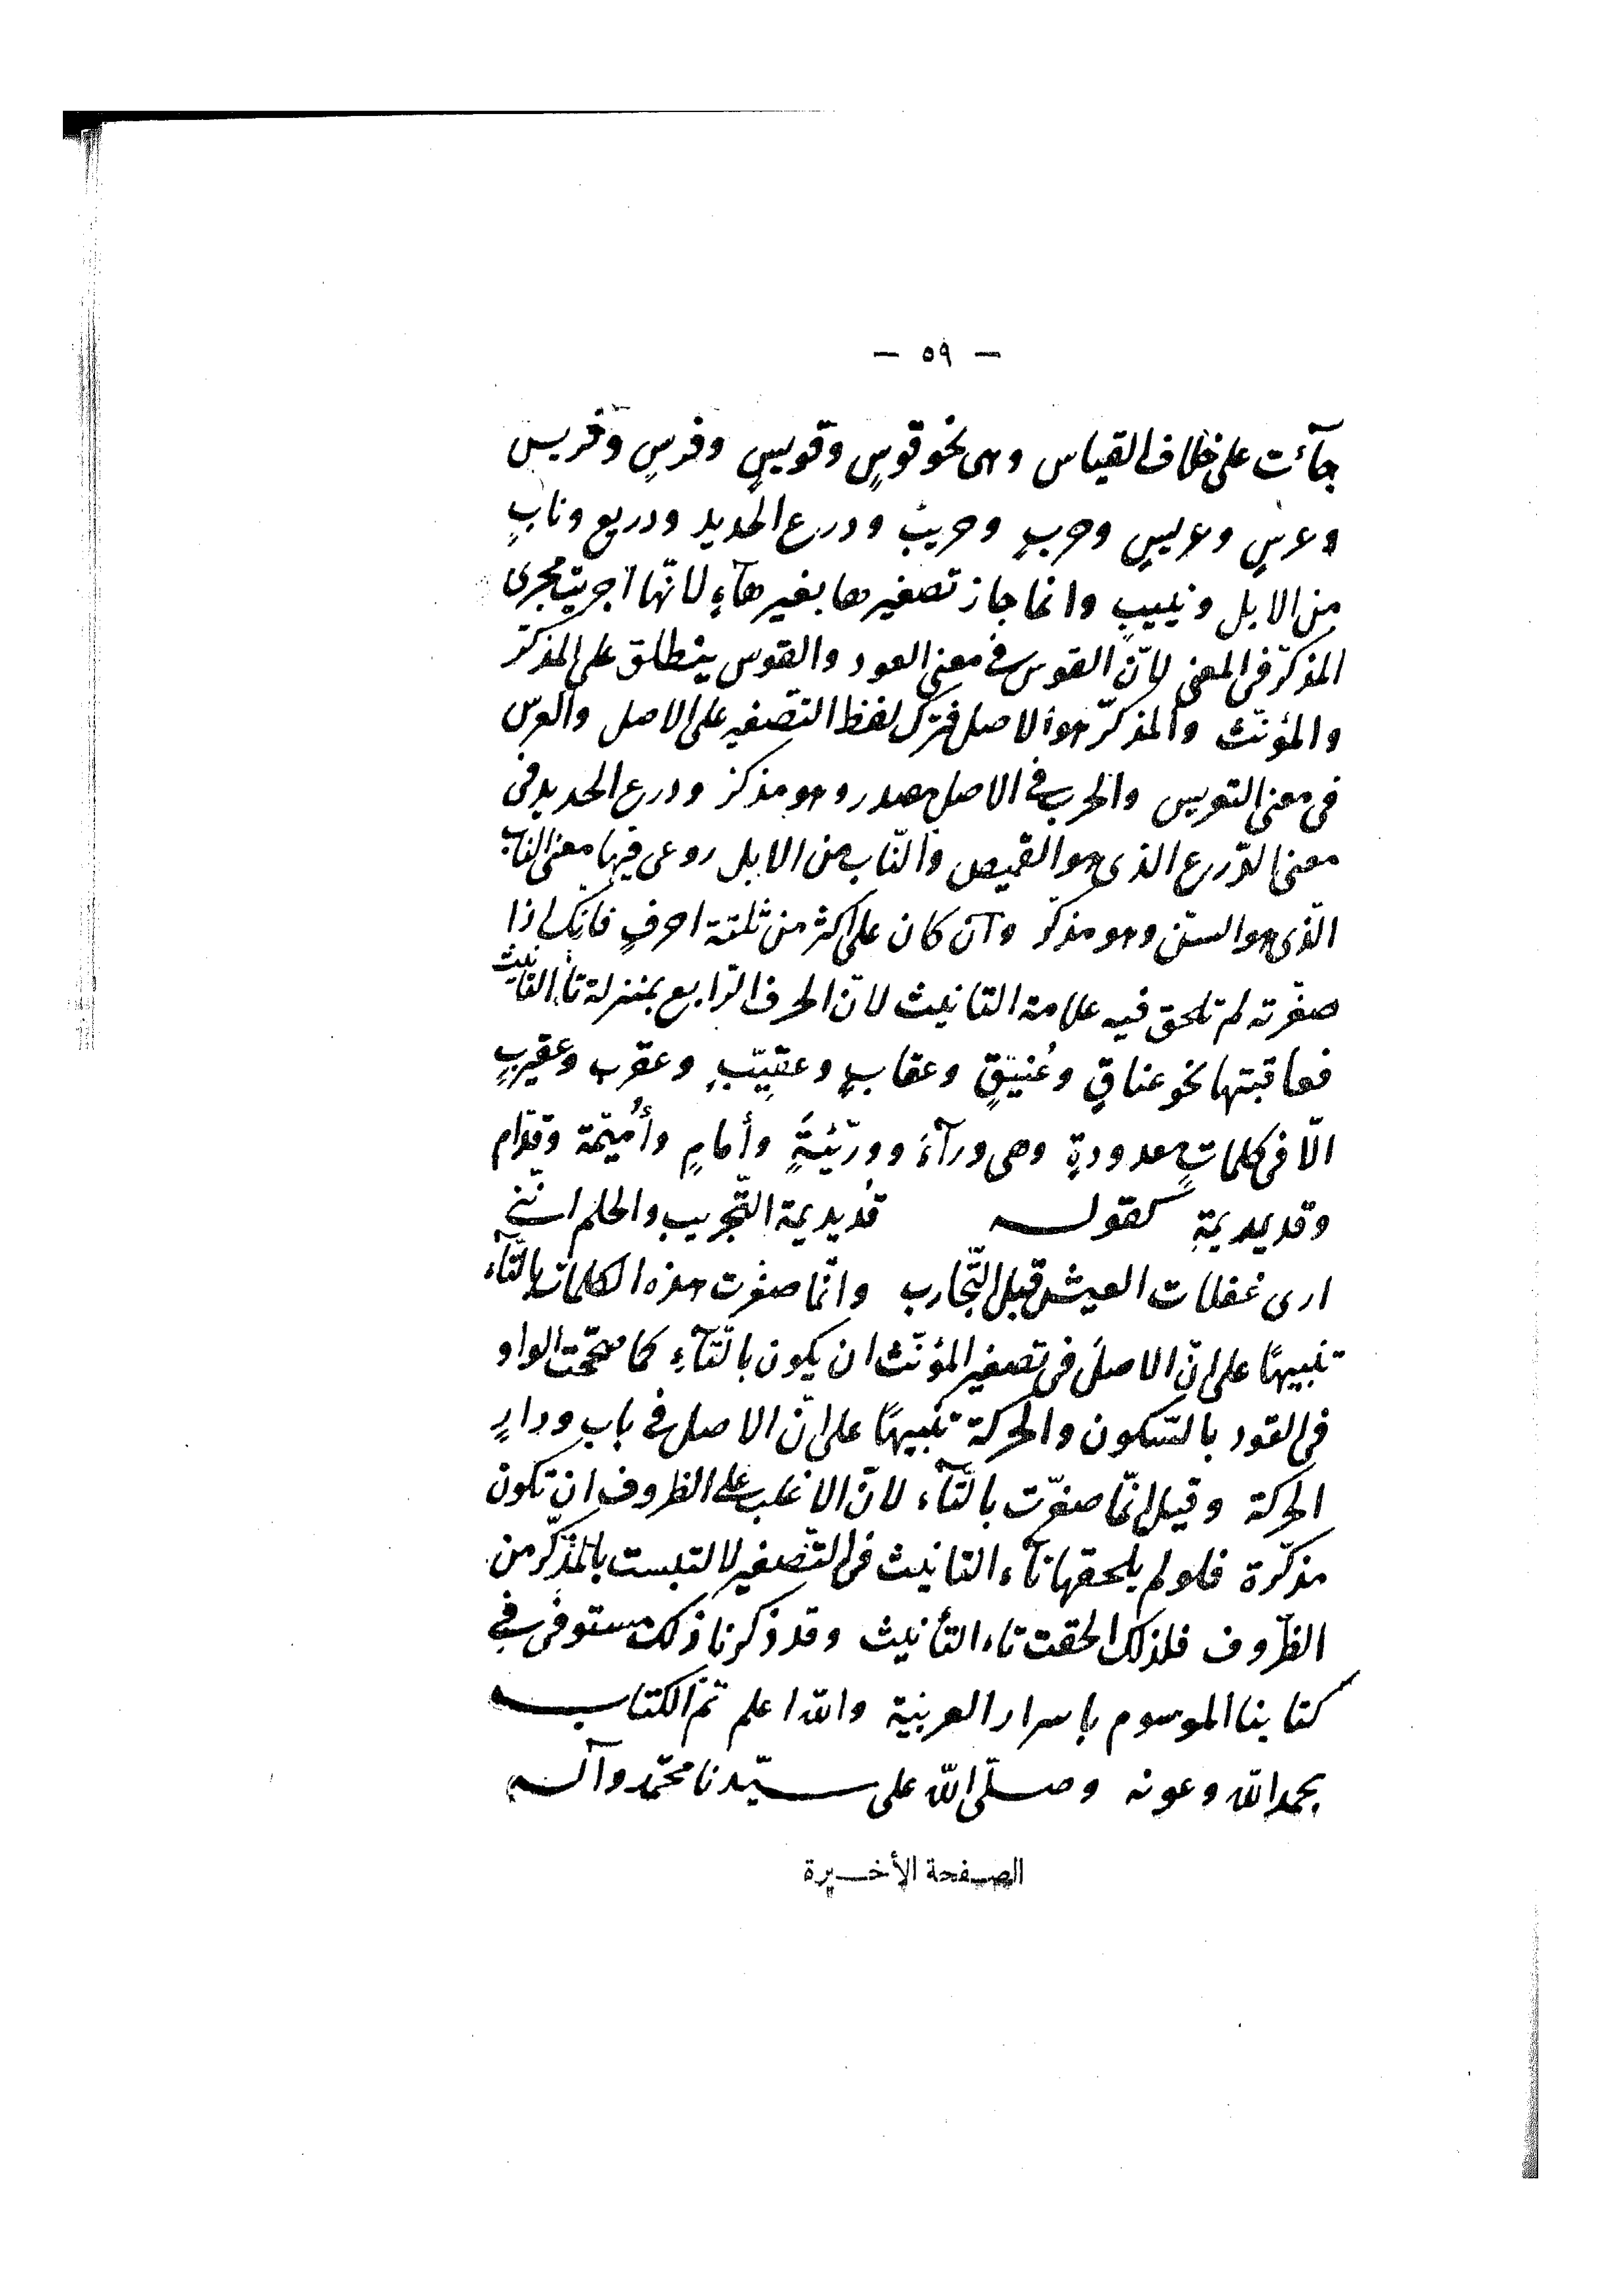 — ٥٩ —
جآءت على خلاف القياس وهى نحو قوسٍ وقويسٍ وفرسٍ وفريس
وعرسٍ وعريسٍ وحربٍ وحريبٍ ودرع الحديد ودريع ونابٍ
من الابل ونييبٍ وانما جاز تصغيرها بغير هآءٍ لانّها اجريت مجرى
المذكّر فى المعنى لانّ القوس فى معنى العود والقوس ينطلق على المذكّر
والمؤنّث والمذكّر هو الاصل فترك لفظ التصغير على الاصل والعرس
فى معنى التعريس والحرب فى الاصل مصدر وهو مذكر ودرع الحديد فى
معنى الدّرع الذى هو القميص والنّاب من الابل روعى فيها معنى الناب
الّذى هو السنّ وهو مذكّر وان كان على اكثر من ثلثة احرفٍ فانّك اذا
صغّرته لم تلحق فيه علامة التانيث لانّ الحرف الرّابع بمنزلة تاء التانيث
فعاقبتها نحو عناقٍ وعُنيّقٍ وعقابٍ وعقيّبٍ وعقرب وعقيربٍ
الّا فى كلماتٍ معدودةٍ وهى ورآء وورّيّئةٍ وأمامٍ وأُميّمة وقدّام
وقديديمةٍ كقوله قُديديمة التّجريب والحلم انّنى
ارى غفلات العيش قبل التّجارب وانّما صغّرت هذه الكلمات بالتّآء
تنبيهًا على انّ الاصل فى تصغير المؤنّث ان يكون بالتّآءِ كما صحّحت الواو
فى القود بالسّكون والحركة تنبيهًا على انّ الاصل فى باب ودارٍ
الحركة وقيل انّما صغّرت بالتّآء لانّ الاغلب على الظروف ان تكون
مذكّرة فلو لم يلحقها تآء التانيث فى التّصغير لالتبست بالمذكّر من
الظّروف فلذلك الحقت تاء التأنيث وقد ذكرنا ذلك مستوفى فى
كتابنا الموسوم باسرار العربيّة والله اعلم تمّ الكتاب
بحمد الله وعونه وصلّى الله على سيّدنا محمّد وآله
الصفحة الأخيرة